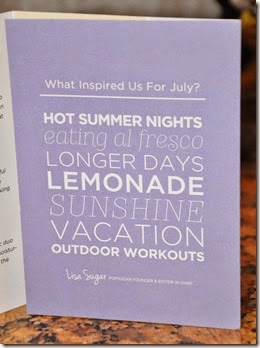 What Inspired Us For July?
HOT SUMMER NIGHTS
eating al fresco
LONGER DAYS
LEMONADE
SUNSHINE
VACATION
OUTDOOR WORKOUTS
Lisa Sugar POPSUGAR FOUNDER & EDITOR IN CHIEF